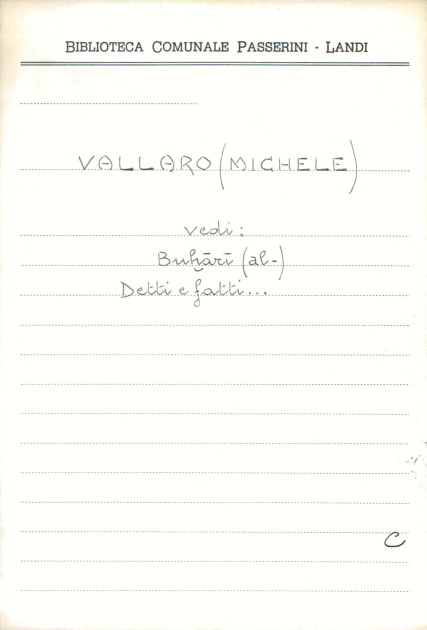 BIBLIOTECA COMUNALE PASSERINI - LANDI
VALLARO (MICHELE)
vedi:
Buḫārī (al-)
Detti e fatti...
C